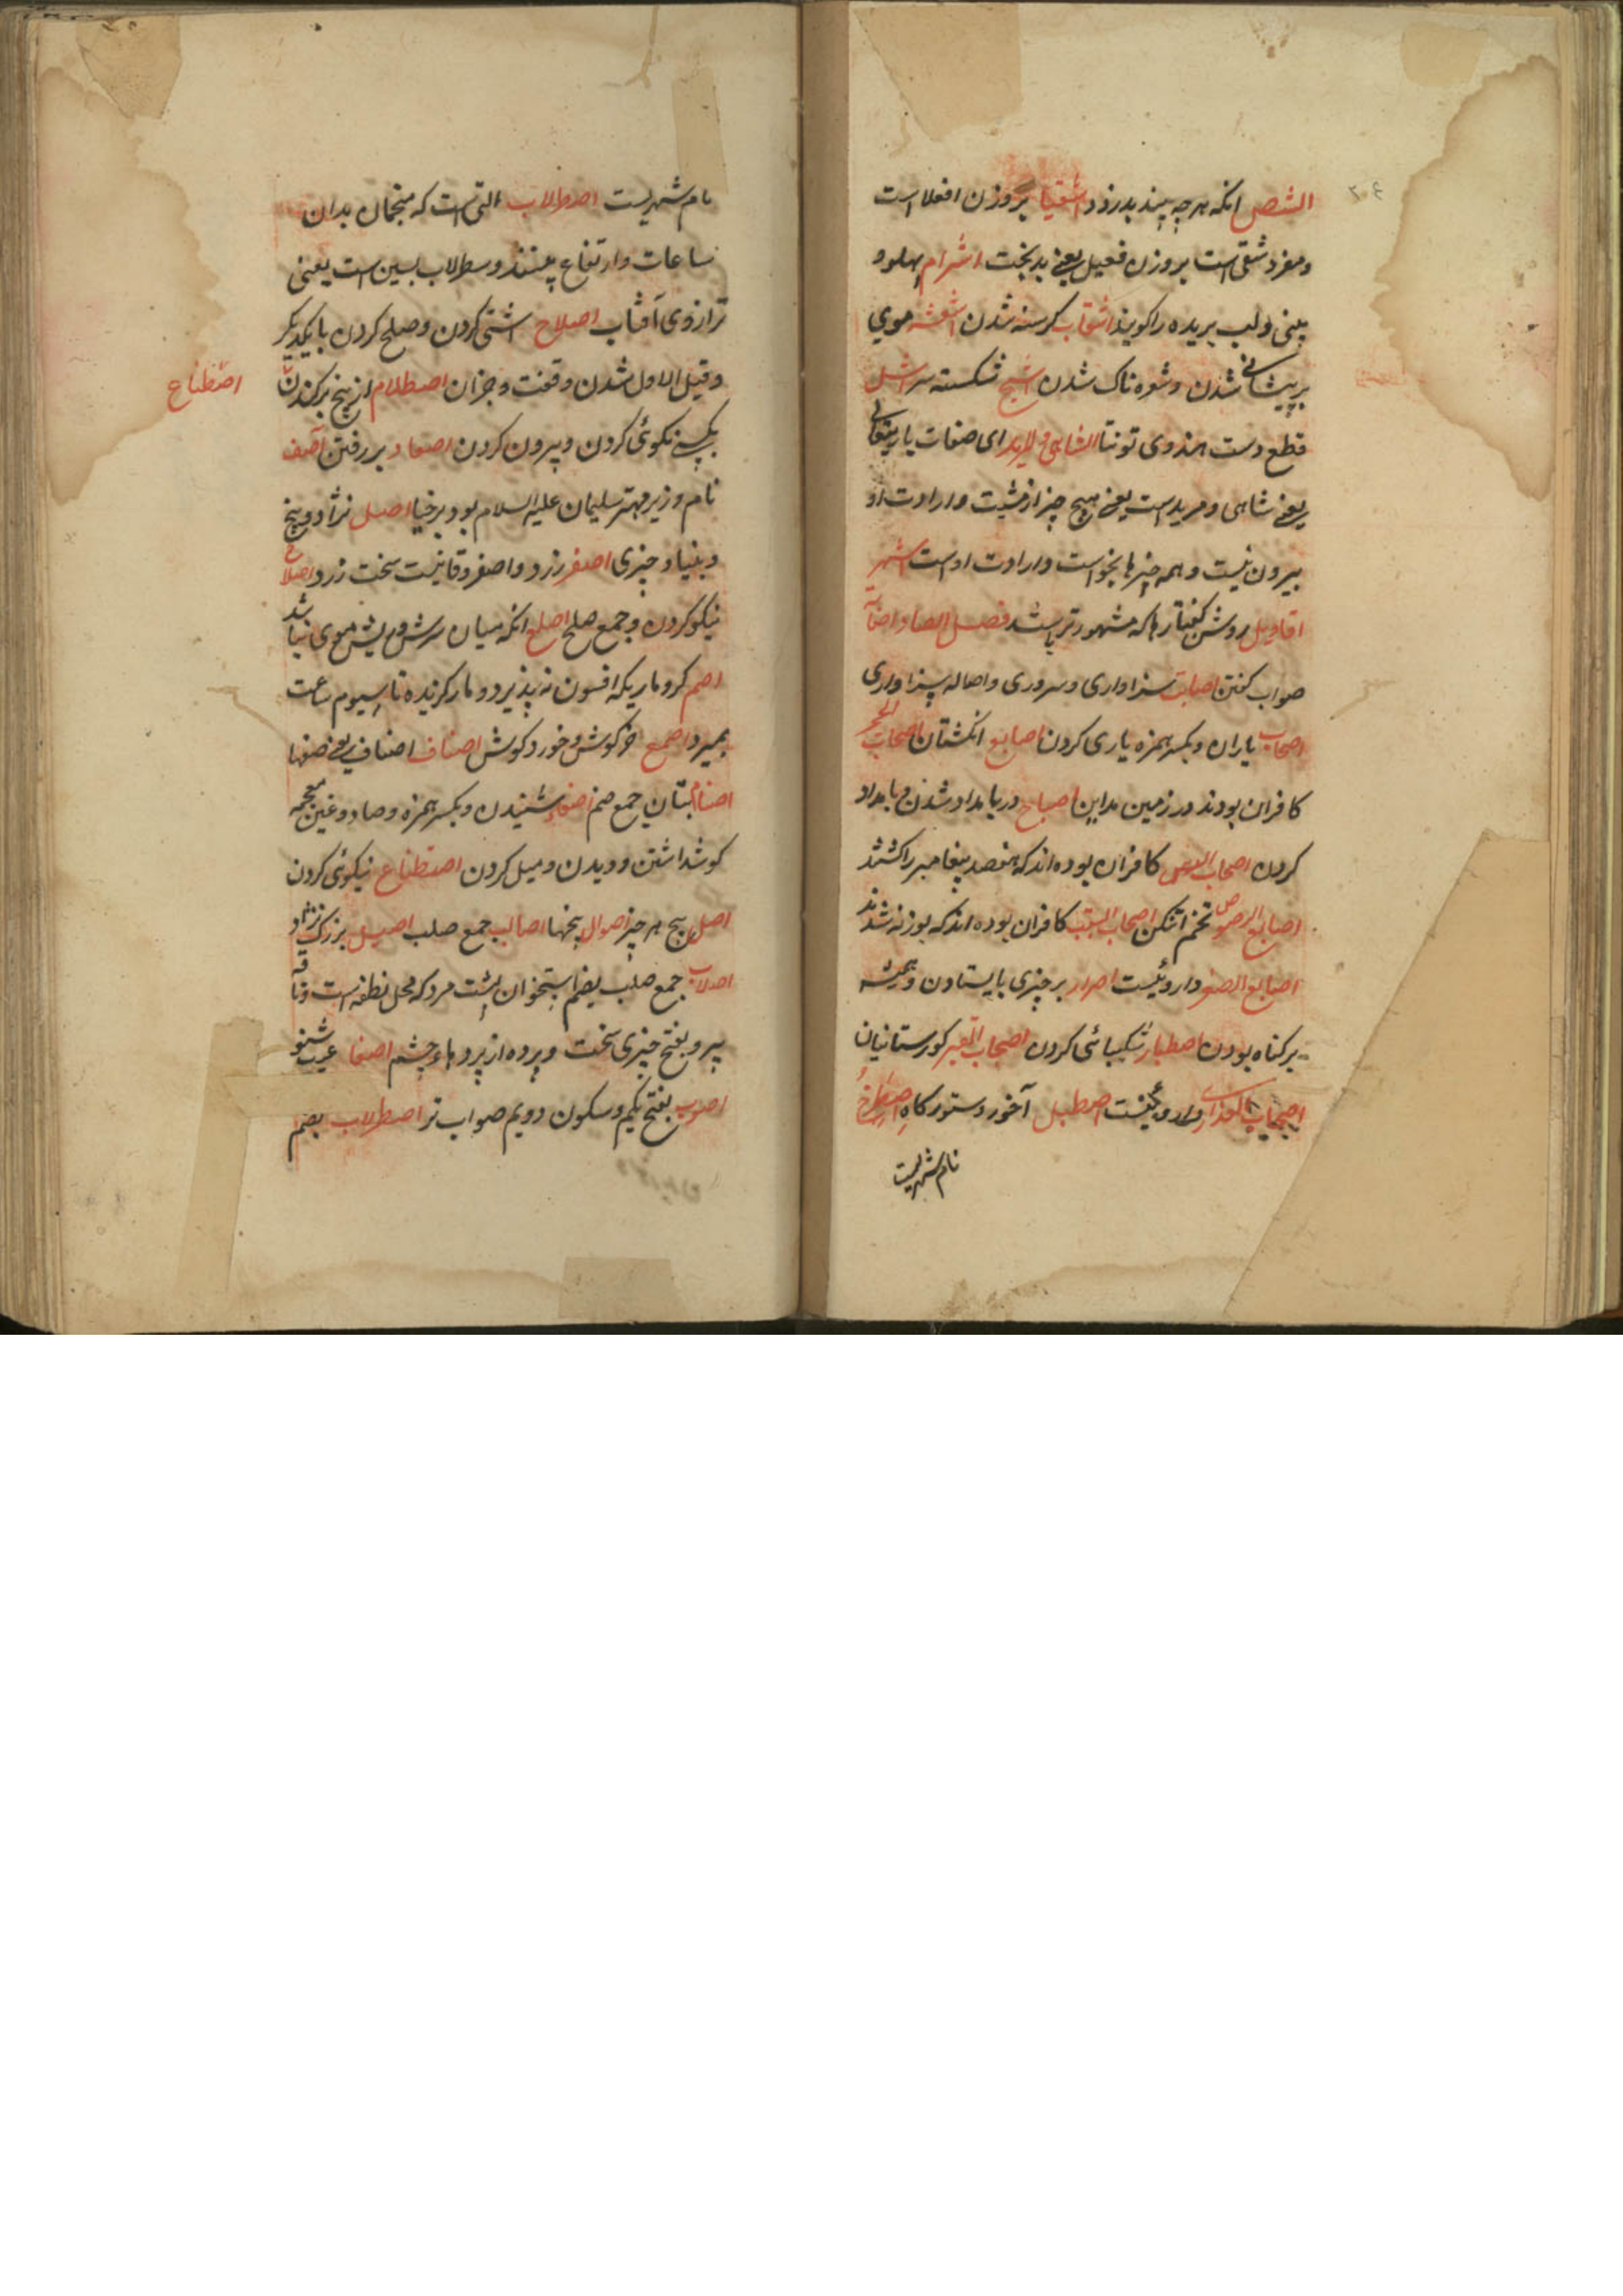 ۲۰۴
الشص انکه هرچه بیند بدزدد اشقیا بروزن افعلا است
ومفرد شقی است بروزن فعیل یعنی بدبخت اشرام پهلو و
بینی ولب بریده را کویند اشعاب کرسنه شدن موی
بر پیشانی شدن وشوه ناک شدن اشج شکسته سر اشل
قطع دست هندوی تونتا الشاهی والمرید ای صفات باریتعالی
یعنی شاهی ومرید است یعنی هیچ چیز از مشیت وارادت او
بیرون نیست وهمه چیزها بخواست وارادت اوست اشهر
اقاویل روشن کفتارها که مشهورتر باشد فصل الصاد اصابة
صواب کفتن اصابت سزاواری وسروری واصاله سزاواری
اصحاب یاران وبکسر همزه یاری کردن اصابع انکشتان اصحاب الحجر
کافران بودند در زمین مداین اصباح در بامداد شدن وبامداد
کردن اصحاب الرس کافران بوده اند که هفصد پیغامبر را کشتند
اصابع تخم اصحاب السبت کافران بوده اند که بوزنه شدند
اصابع الصفر داروئیست اصرار بر چیزی بایستادن وهمیشه
برکناه بودن اصطبار شکیبائی کردن اصحاب القبر کورستانیان
داروئیست اصطبل آخور وستورکاه اصطرخ
نام شهریست
نام شهریست اصطرلاب التی است که منجمان بدان
ساعات وارتفاع بینند وسطرلاب یعنی
ترازوی آفتاب اصلاح اشتی کردن وصلح کردن با یکدیکر
وقیل الاول شدن وقعت وجزان اصطلام از بیخ برکندن
اصطناع
بکسی نکوئی کردن وبیرون کردن اصعاد بر رفتن آصف
نام وزیر مهتر سلیمان علیه السلام بود برخیا اصل نژاد وبیخ
وبنیاد چیزی اصفر زرد واصفر وقا نیست سخت زرد اصلاح
نیکو کردن وجمع صلح اصلع انکه میان سرش موی نباشد
اصم کر وماریکه افسون نپذیرد ومار کزنده تا سیوم ساعت
بمیرد اصمع خرکوش وخورد کوش اصناف اصناف یعنی صنفها
اصنام بتان جمع صنم اصغا شنیدن وبکسر همزه وصاد وغین معجمه
کوش داشتن ودیدن ومیل کردن اصطناع نیکوئی کردن
اصل بیخ هر چیز اصول بیخها اصالب جمع صلب اصیل بزرک نژاد
اصلاب جمع صلب بضم استخوان پشت مرد که محل نطفه است وناقه
پیر وبفتح چیزی سخت وپرده از پردهاء چشم اصغا عیب شنو
اصوب بفتح یکم وسکون دویم صواب تر اصطرلاب بضم